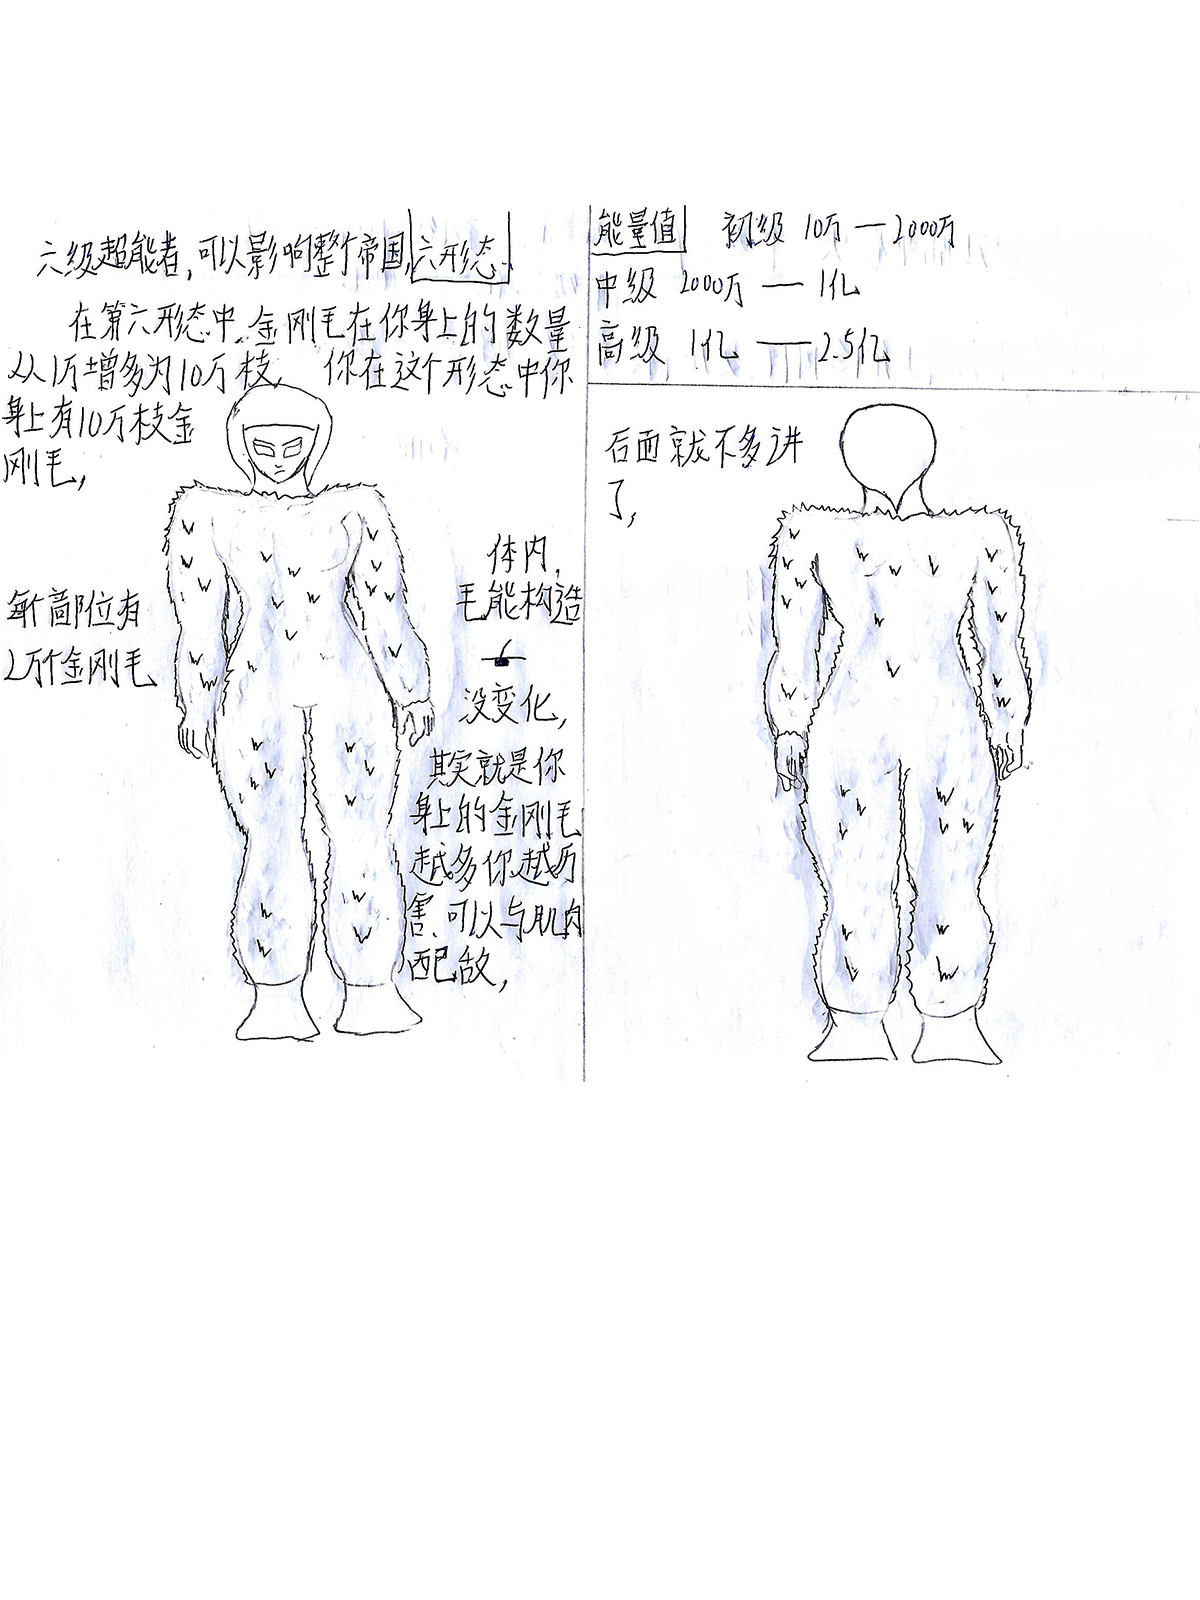 六级超能者,可以影响整个帝国,六形态、
在第六形态中、金刚毛在你身上的数量
从1万增多为10万枝, 你在这个形态中你
身上有10万枝金
刚毛,
每个部位有
2万个金刚毛
体内,
毛能构造
没变化,
其实就是你
身上的金刚毛
越多你越厉
害、可以与肌肉
配故,
能量值 初级 10万—2000万
中级 2000万—1亿
高级 1亿——2.5亿
后面就不多讲
了,